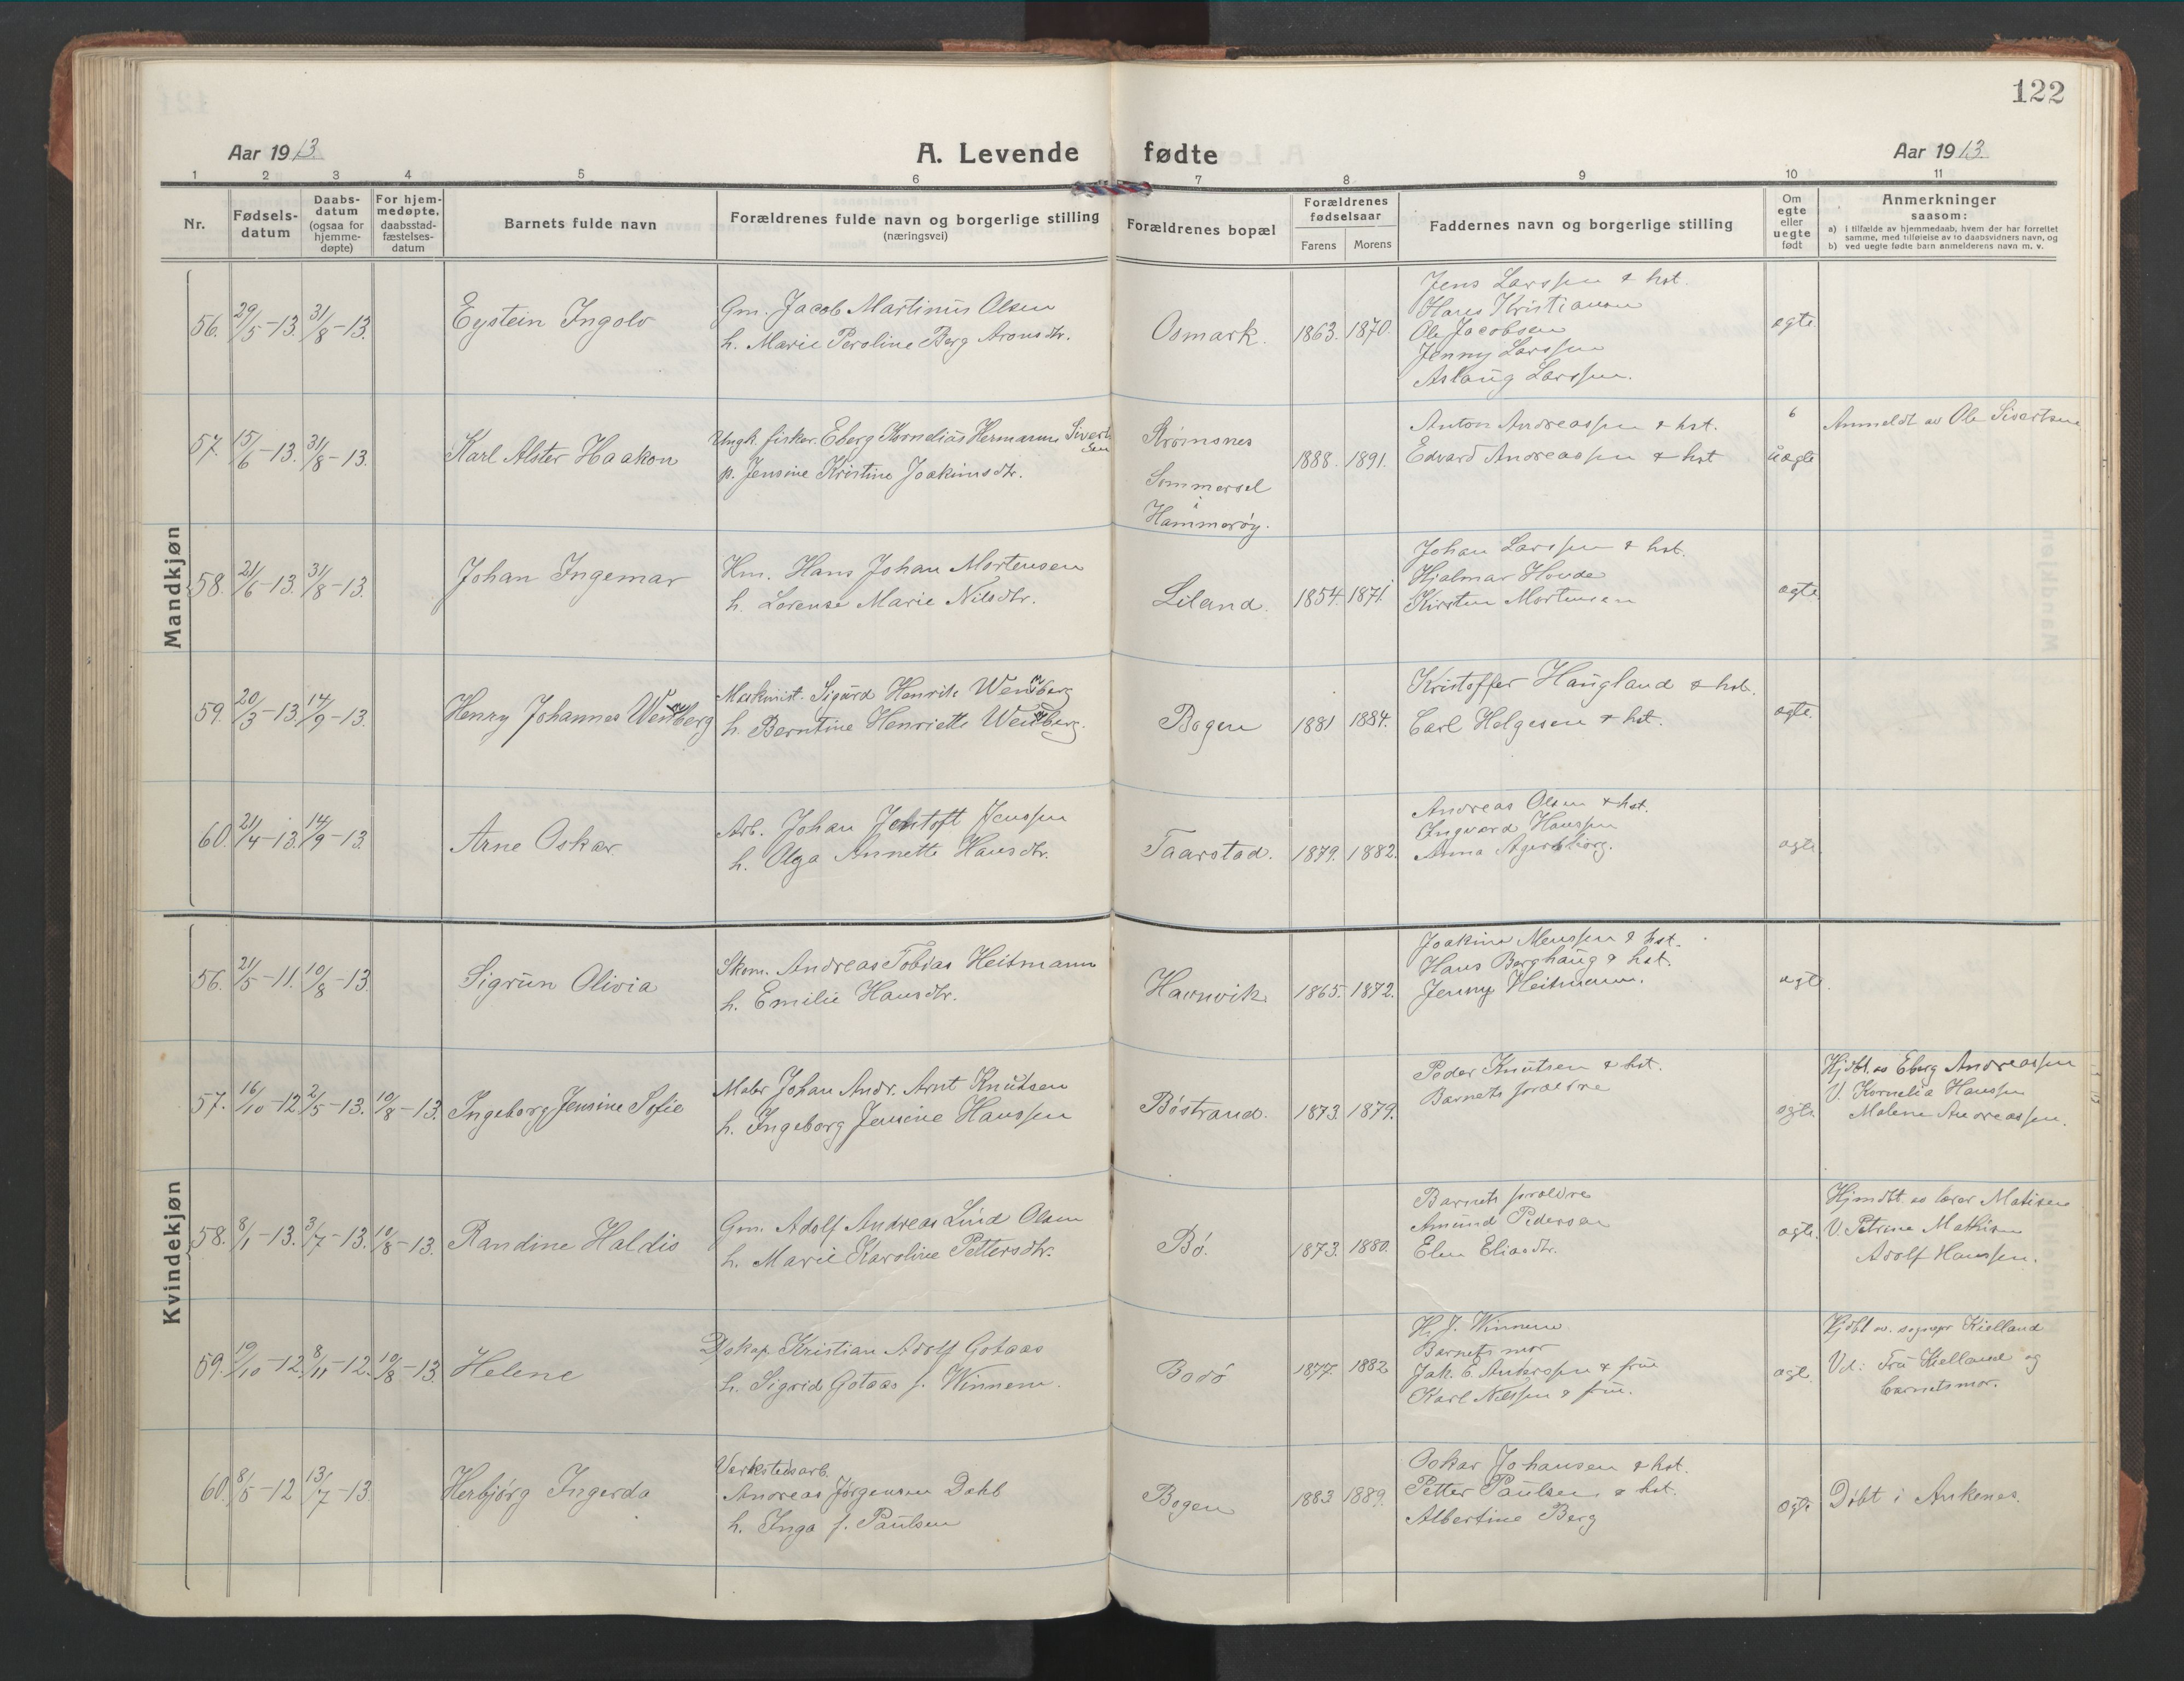 122
Aar 1913. A. Levende fødte Aar 1913.
1 2 3 4 5 6 7 8 9 10 11
Nr. Fødsels-datum Daabs-datum (ogsaa for hjemme-døpte) For hjem-medøpte, daabsstad-fæstelses-datum Barnets fulde navn Forældrenes fulde navn og borgerlige stilling (næringsvei) Forældrenes bopæl Forældrenes fødselsaar Farens Morens Faddernes navn og borgerlige stilling Om egte eller uegte født Anmerkninger saasom:
a) i tilfælde av hjemmedaab, hvem der har forrettet samme, med tilføielse av to daabsvidners navn, og
b) ved uegte fødte barn anmelderens navn m. v.
Mandkjøn
56. 29/5-13. 31/8-13. Eystein Ingolv
Gm. Jacob Martinus Olsen
h. Marie Peroline Berg Aronsdtr.
Osmark. 1863. 1870.
Jens Larssen & hst.
Hans Kristiansen
Ole Jacobsen
Jenny Larssen
Aslaug Larssen.
egte
57. 15/6-13. 31/8-13. Karl Alster Haakon
Ungk. fisker. Eberg Korneliäs Hermannus Sivertsen
p. Jensine Kristine Joakimsdtr.
Strømsnes
Sommersel
i
Hammerøy.
1888. 1891.
Anton Andreassen & hst.
Edvard Andreassen & hst
6
uegte
Anmeldt av Ole Sivertsen
58. 21/6-13. 31/8-13. Johan Ingemar
Hm. Hans Johan Mortensen
h. Lorense Marie Nilsdtr.
Liland. 1854. 1871.
Johan Larssen & hst.
Hjalmar Hovde
Kirsten Mortensen
egte
59. 20/3-13. 14/9-13. Henry Johannes Wennberg
Maskinist. Sigurd Henrik Wennberg
h. Berntine Henriette Wennberg.
Bogen 1881 1884.
Kristoffer Haugland & hst.
Carl Helgesen & hst.
egte.
60. 21/4-13. 14/9-13 Arne Oskar
Arb. Johan Jentoft Jenssen
h. Olga Annette Hansdtr.
Taarstad. 1879. 1882.
Andreas Olsen & hst.
Ingvard Hanssen
Anna Agersborg.
egte
Kvindekjøn
56. 21/5-11. 10/8-13. Sigrun Olivia
Skom. Andreas Tobias Heitmann
h. Emilie Hansdtr.
Havnvik 1865. 1872.
Joakim Menssen & hst.
Hans Berghaug & hst.
Jenny Heitmann.
egte.
57. 16/10-12. 2/5-13. 10/8-13. Ingeborg Jensine Sofie
Maler Johan Andr. Arnt Knutsen
h. Ingeborg Jensine Hanssen
Bøstrand. 1873. 1879.
Peder Knutsen & hst.
Barnets forældre
egte.
Hjdbt. av Eberg Andreassen
V. Kornelia Hanssen
Malene Andreassen.
58. 8/1-13. 3/7-13. 10/8-13. Randine Haldis
Gm. Adolf Andreas Lind Olsen
h. Marie Karoline Pettersdtr.
Bø. 1873. 1880.
Barnets forældre
Amund Pedersen
Elen Eliasdtr.
egte.
Hjmdbt av lærer Matisen
V. Petrine Mathisen
Adolf Hanssen.
59. 19/10-12. 8/11-12. 10/8-13. Helene
Dskap. Kristian Adolf Gotaas
h. Sigrid Gotaas f. Winnem.
Bodø 1877. 1882
H. J. Winnem
Barnets mor
Jak. E. Anderssen & frue
Karl Nilssen & frue.
egte.
Hjdbt av. sognepr Kielland
Vd: Fru Kielland og
barnets mor.
60. 8/5-12 13/7-13. Herbjørg Ingerda
Verkstedsarb.
Andreas Jørgensen Dahl
h. Inga f. Paulsen
Bogen 1883 1889.
Oskar Johansen & hst.
Petter Paulsen & hst.
Albertine Berg
egte
Døbt i Ankenes.